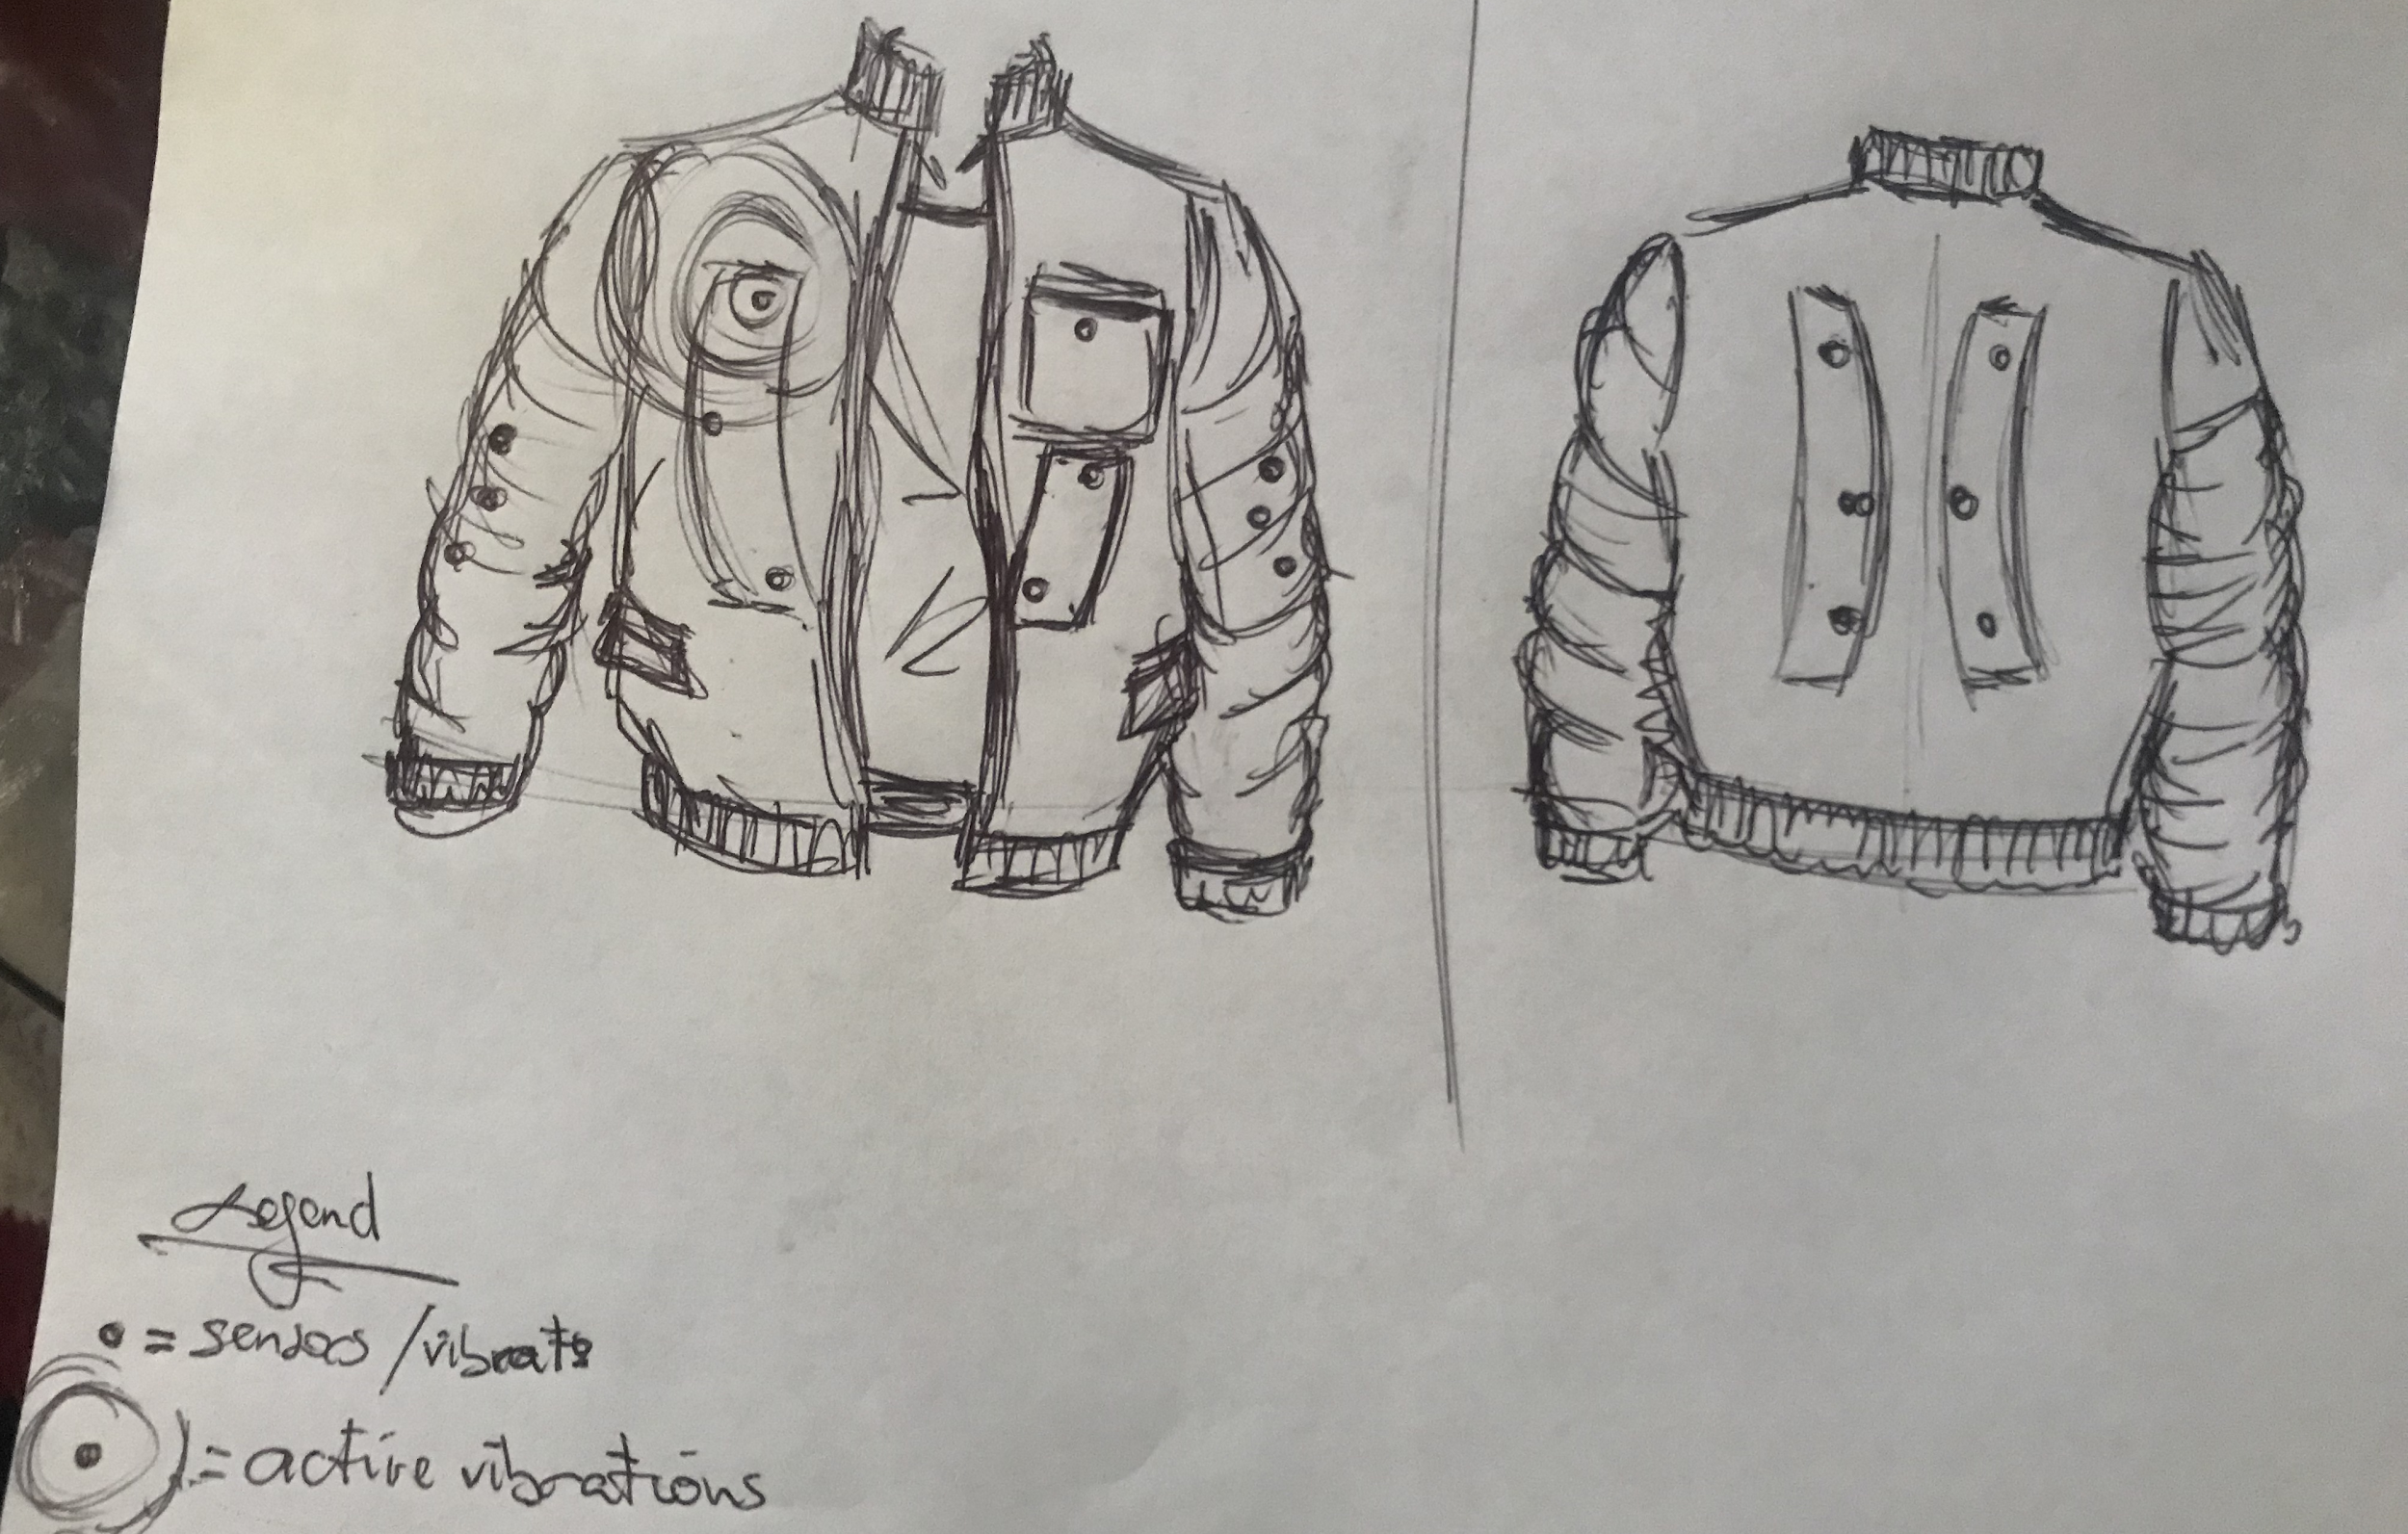 Legend
• = sensors /vibrate
= active vibrations